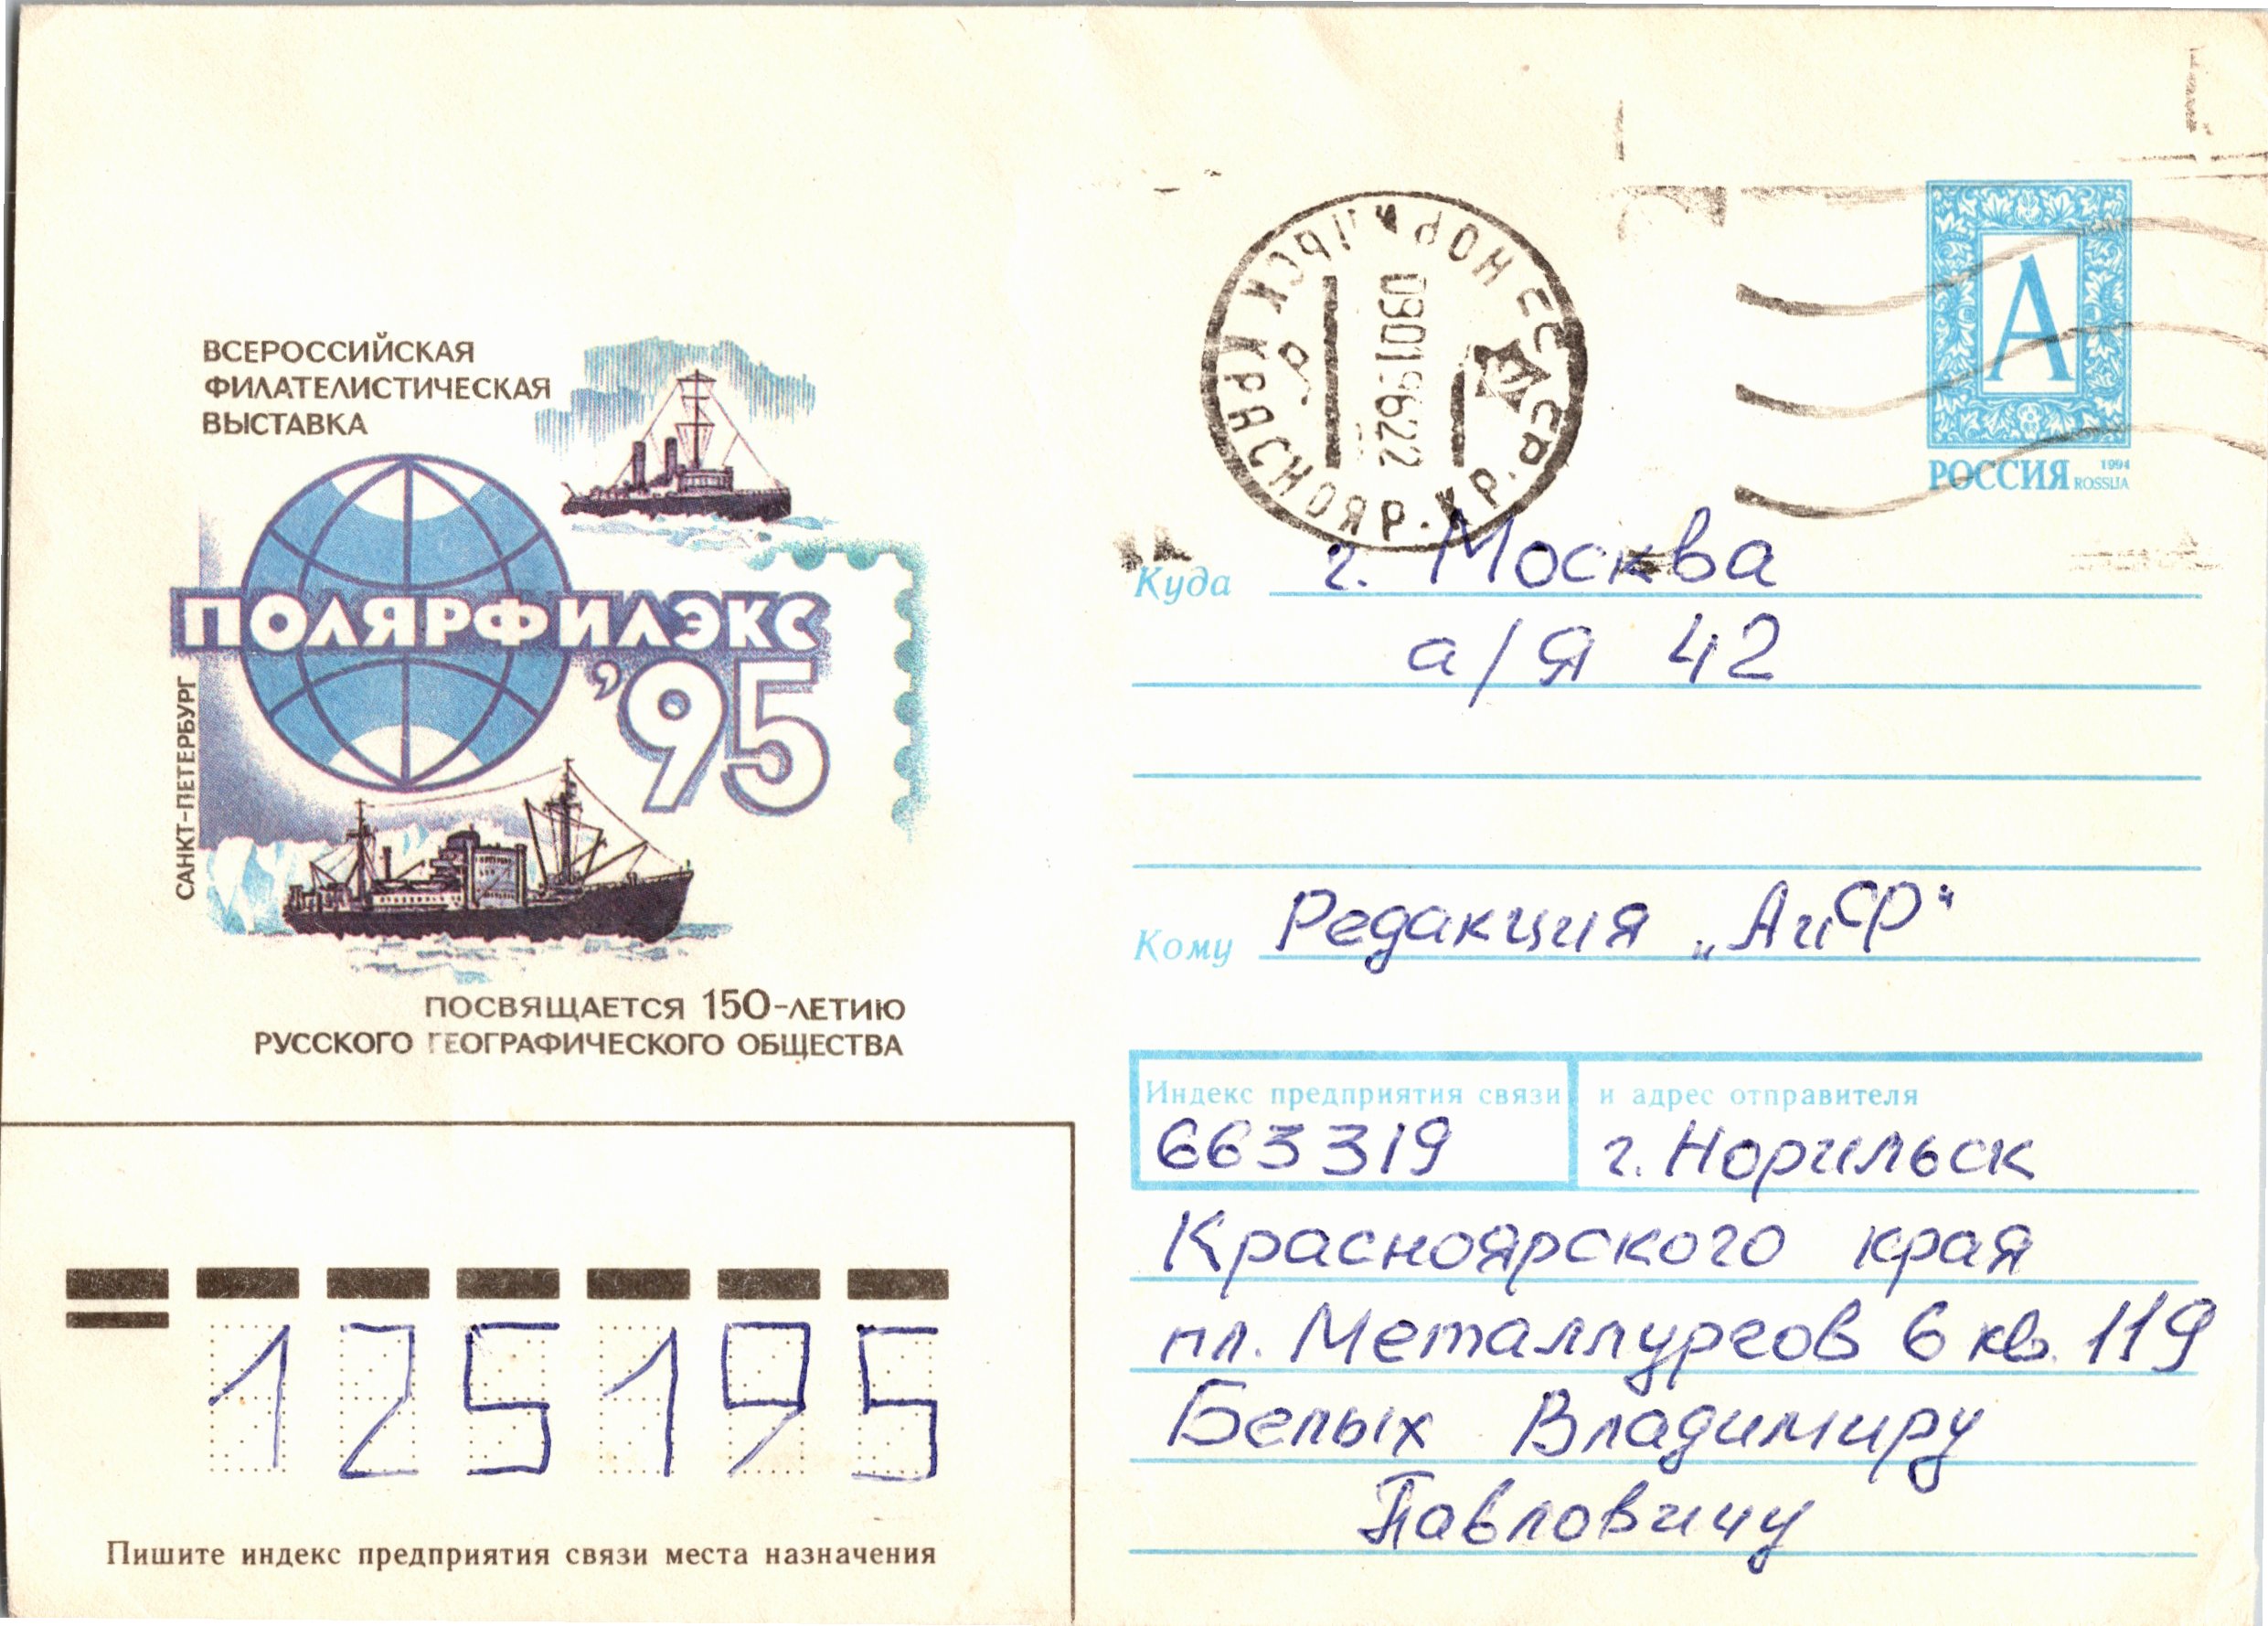 ВСЕРОССИЙСКАЯ
ФИЛАТЕЛИСТИЧЕСКАЯ
ВЫСТАВКА
ПОЛЯРФИЛЭКС
'95
САНКТ-ПЕТЕРБУРГ
ПОСВЯЩАЕТСЯ 150-ЛЕТИЮ
РУССКОГО ГЕОГРАФИЧЕСКОГО ОБЩЕСТВА
125195
Пишите индекс предприятия связи места назначения
НОРИЛЬСК КРАСНОЯР. КР.
СССР
09019622
А
РОССИЯ 1994
ROSSIJA
Куда г. Москва
а/я 42
Кому Редакция „АиСР“
Индекс предприятия связи и адрес отправителя
663319 г. Норильск
Красноярского края
пл. Металлургов 6 кв. 119
Белых Владимиру
Павловичу